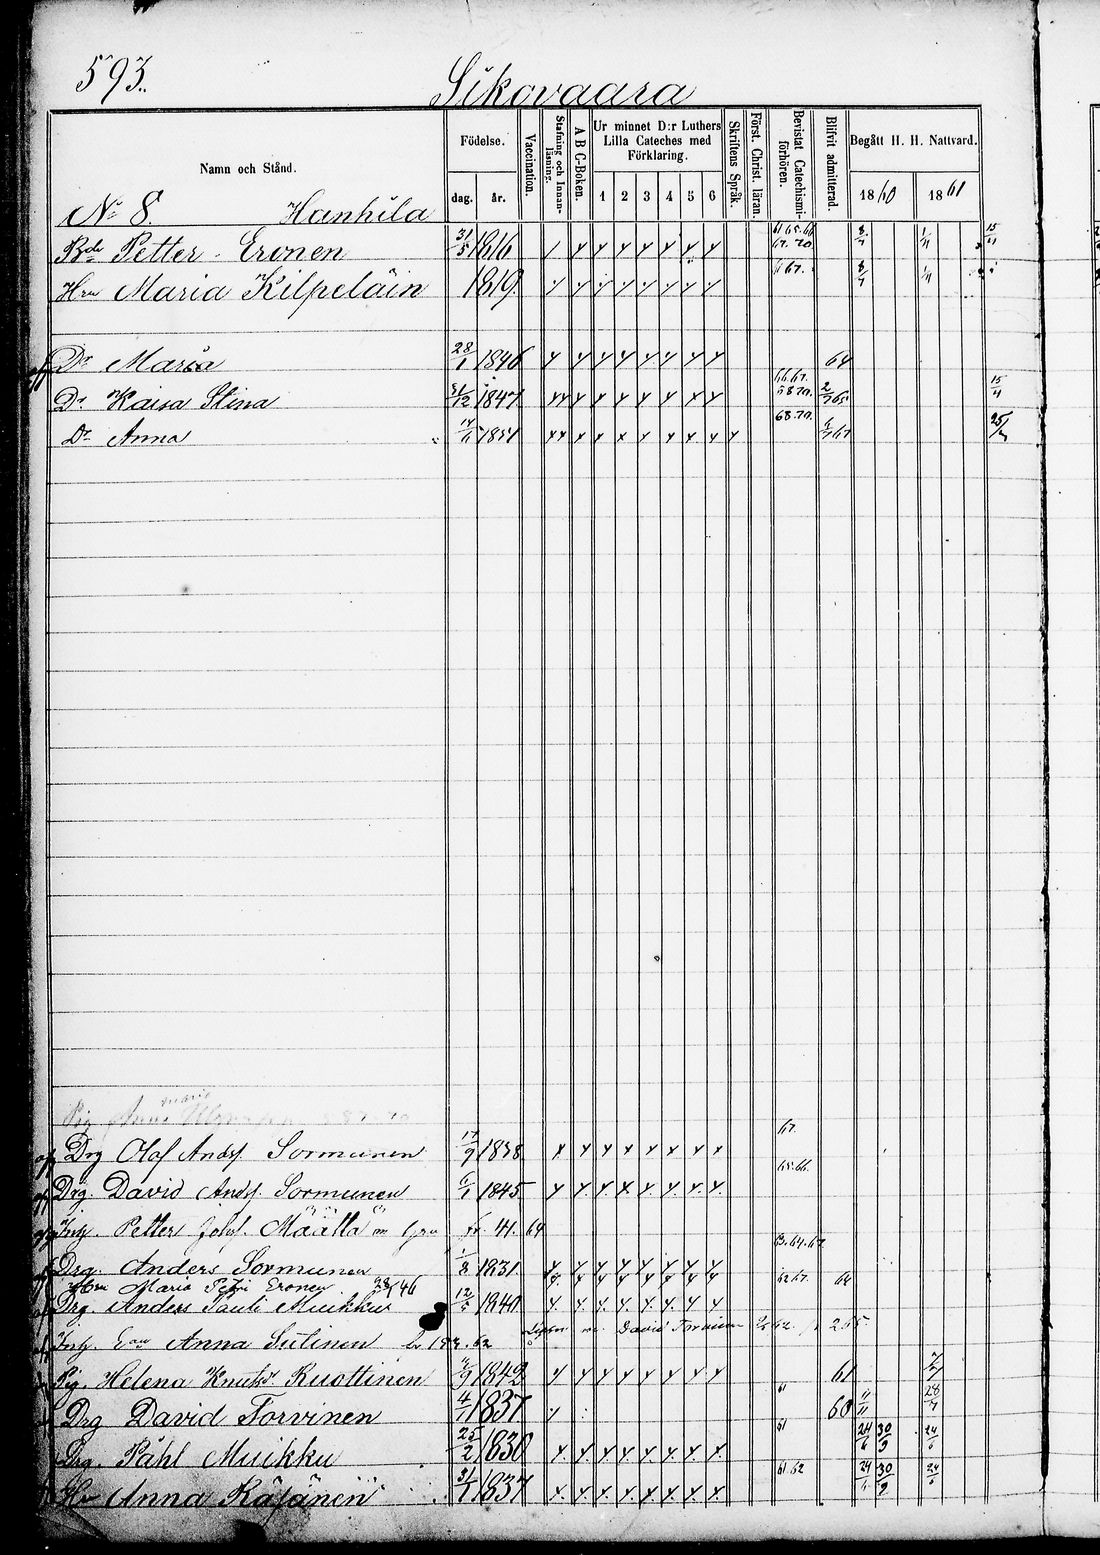 593.
Sikovaara
Namn och Stånd.
Födelse.
dag. år.
Vaccination.
Stafning och Innan-läsning.
A B C-Boken.
Ur minnet D:r Luthers Lilla Cateches med Förklaring.
1 2 3 4 5 6
Skriftens Språk.
Först. Christ. läran.
Bevistat Catechismi-förhören.
Blifvit admitterad.
Begått H. H. Nattvard.
1860 1861
No 8. Hanhila
Petter Eronen 31/5 1816 67.70 8/7 1/11 15/11
Hru Maria Kilpeläin 1819 67. 8/7 1/11
Dr Maria 28/1 1846 64
Dr Kaisa Stina 31/12 1847 66.67. 68 70. 2/7 65 15/11
Dr Anna 1851 68.70. 67
Maria
Pig Anna
Drg Olof Andsf. Sormunen 17/9 1838 67.
Drg. David Andsf. Sormunen 6/1 1845 65.66.
Petter Johsf. Määttä 41. 64
Drg. Anders Sormunen 1/8 1831 63.64.67
Hru Maria Petri Eronen 28/1 46 62 67. 64
Drg Anders Pauli Muikku 12/5 1840
Anna Sutinen David Torvinen
Pig. Helena Knutsd. Ruottinen 1842 61
Drg David Torvinen 4/1 1837 61 60 11/11 28/7
Drg. Påhl Muikku 25/2 1830 61 24/6 30/9 24/6
Hu Anna Käjänen 31/1 1837 61 62 24/6 30/9 24/6